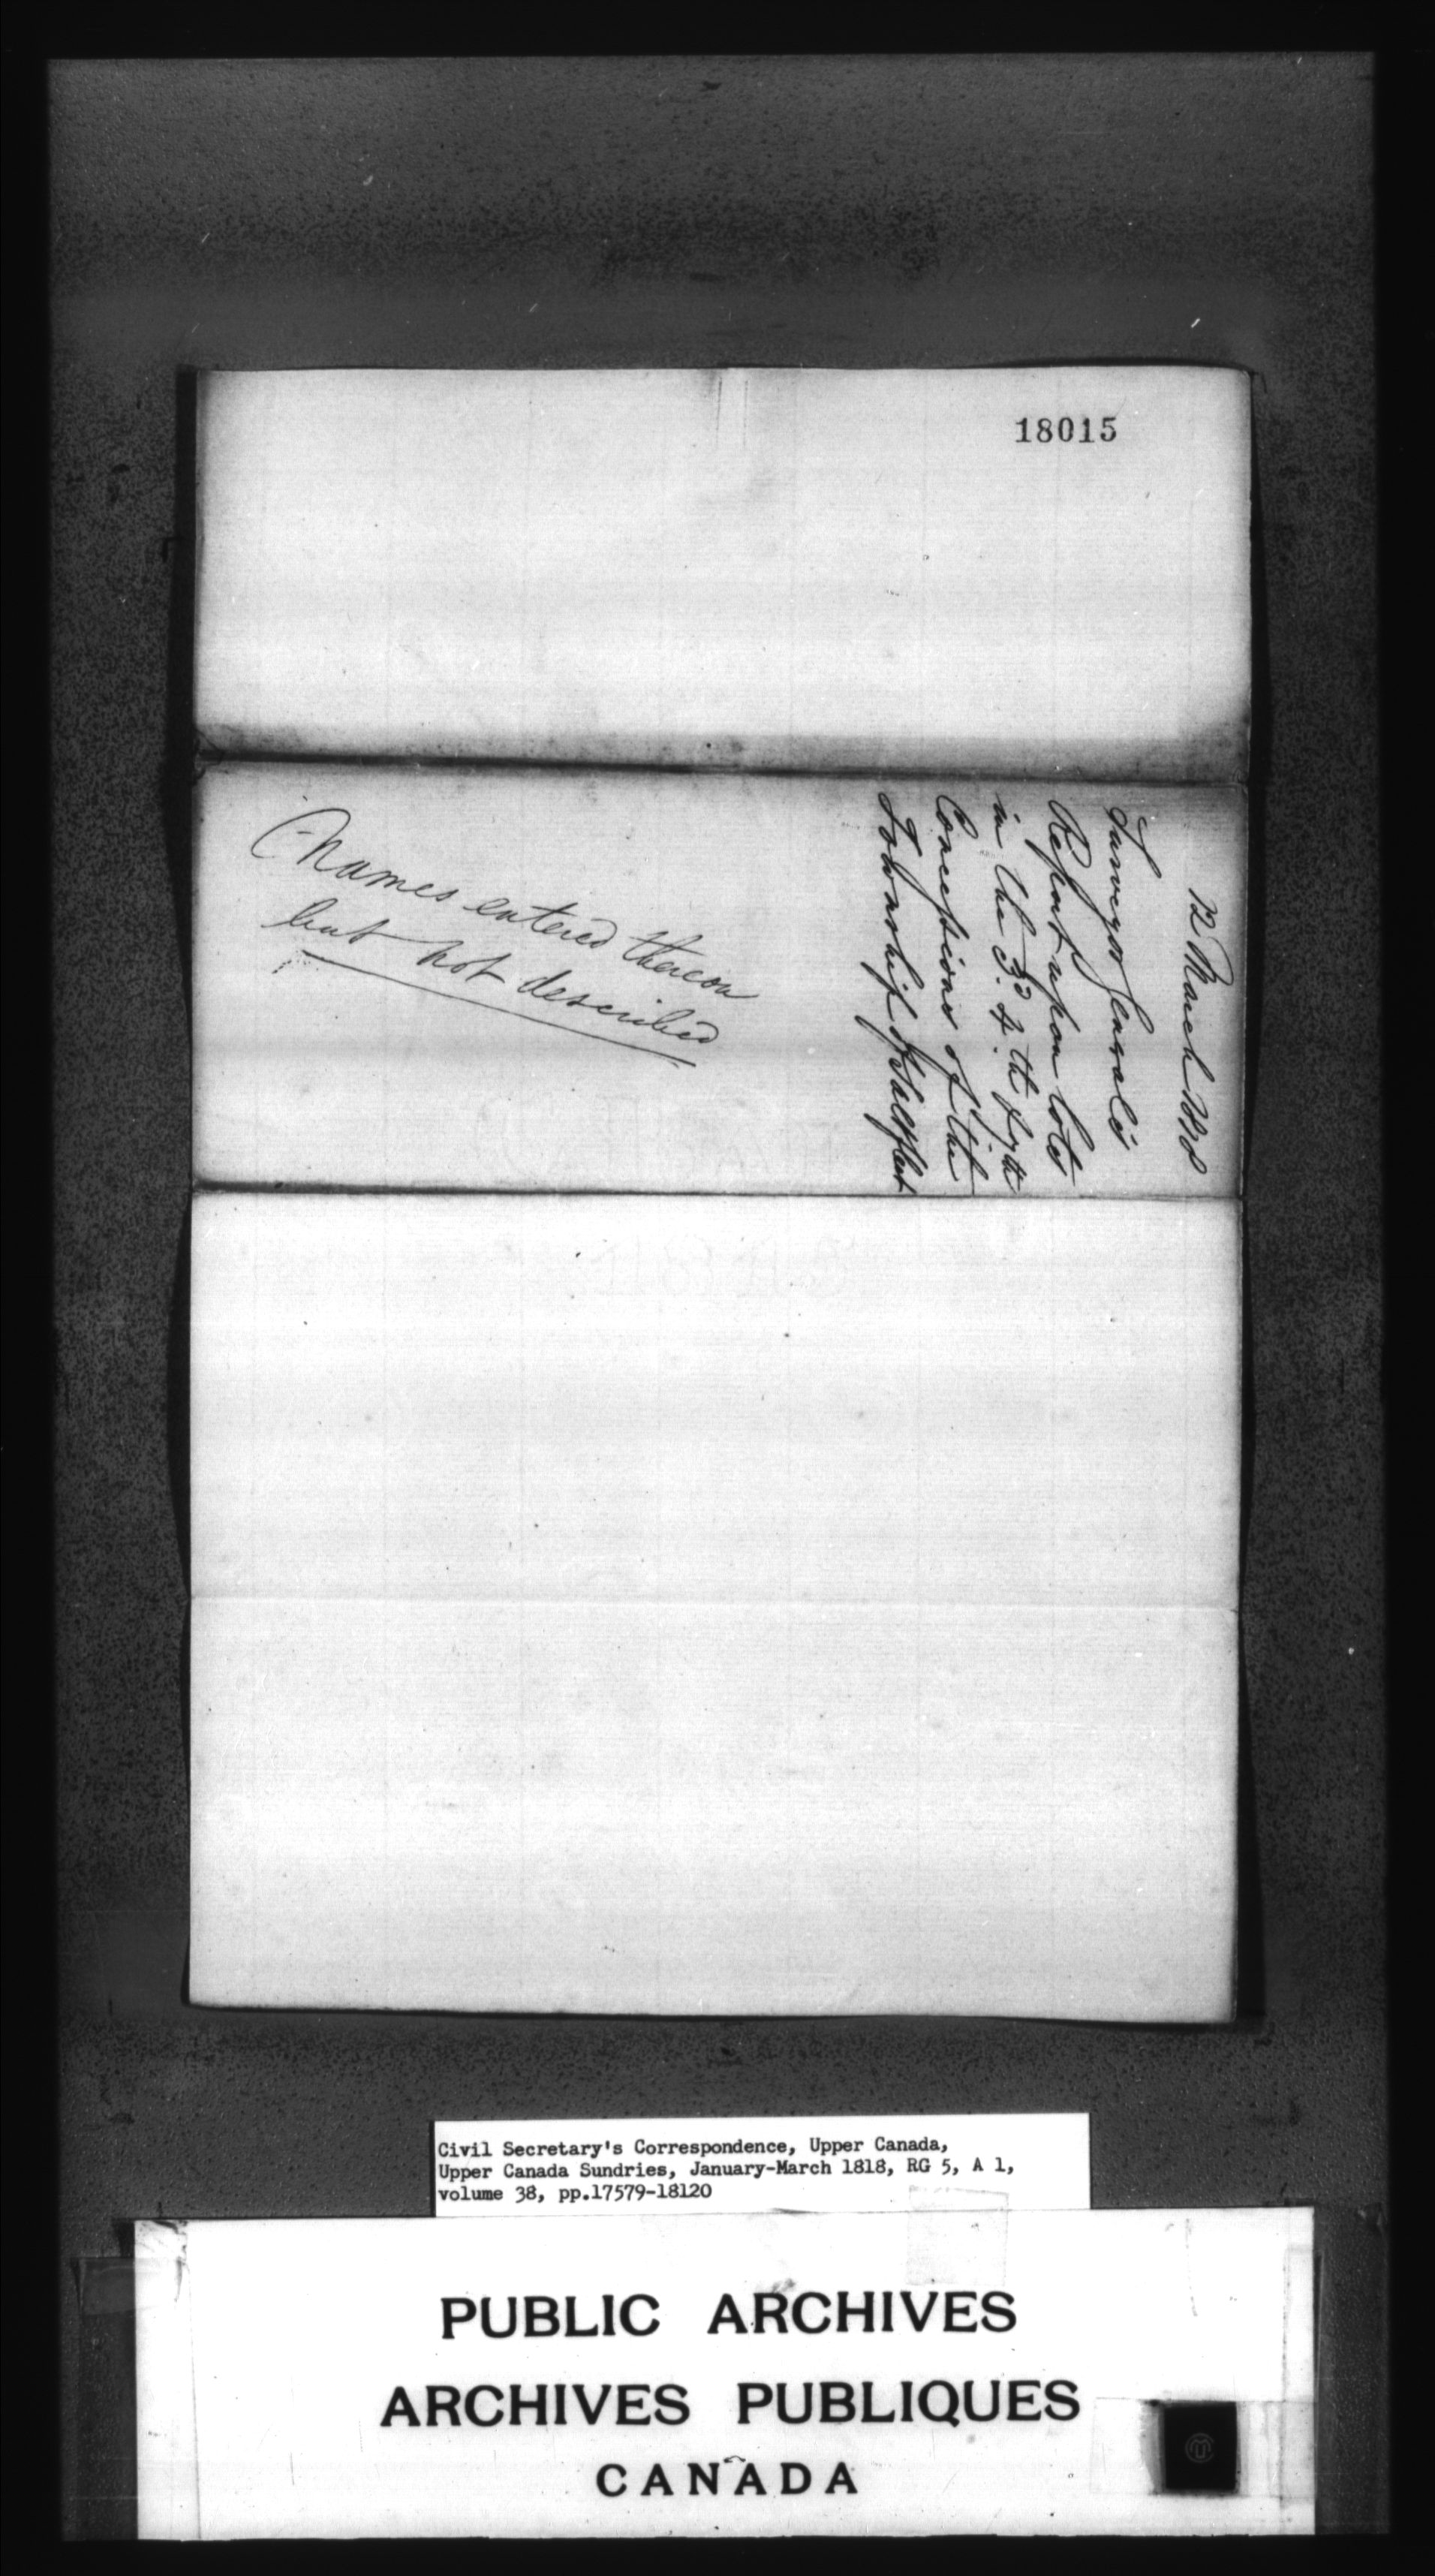 18015
12 March 1818
Surveyor General's
Report upon lots
in the 3d 4th &
Concessions of the
Township of Saltfleet
Names entered thereon
but not described
Civil Secretary's Correspondence, Upper Canada,
Upper Canada Sundries, January-March 1818, RG 5, A 1,
volume 38, pp.17579-18120
PUBLIC ARCHIVES
ARCHIVES PUBLIQUES
CANADA